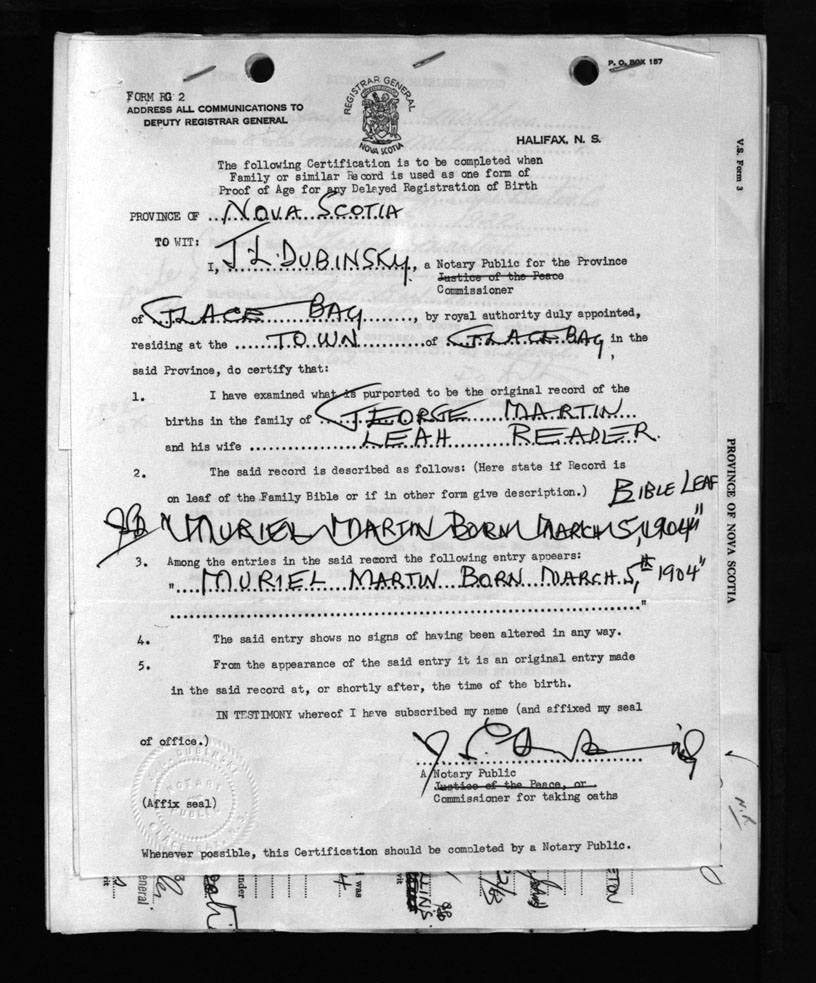 P. O. BOX 157
FORM RG 2
ADDRESS ALL COMMUNICATIONS TO
DEPUTY REGISTRAR GENERAL
REGISTRAR GENERAL
NOVA SCOTIA
HALIFAX, N. S.
V.S. Form 3
The following Certification is to be completed when
Family or similar Record is used as one form of
Proof of Age for any Delayed Registration of Birth
PROVINCE OF ..NOVA SCOTIA
TO WIT:
I, J.L. DUBINSKY, a Notary Public for the Province
Justice of the Peace
Commissioner
of GLACE BAY, by royal authority duly appointed,
residing at the TOWN of GLACE BAY, in the
said Province, do certify that:
1. I have examined what is purported to be the original record of the
births in the family of GEORGE MARTIN
and his wife LEAH READER.
2. The said record is described as follows: (Here state if Record is
on leaf of the Family Bible or if in other form give description.) BIBLE LEAF
"MURIEL MARTIN BORN MARCH 5, 1904"
3. Among the entries in the said record the following entry appears:
"MURIEL MARTIN BORN MARCH 5,th 1904"
"
4. The said entry shows no signs of having been altered in any way.
5. From the appearance of the said entry it is an original entry made
in the said record at, or shortly after, the time of the birth.
IN TESTIMONY whereof I have subscribed my name (and affixed my seal
of office.)
A Notary Public
Justice of the Peace, or
Commissioner for taking oaths
(Affix seal)
NOTARY
PUBLIC
Whenever possible, this Certification should be completed by a Notary Public.
PROVINCE OF NOVA SCOTIA